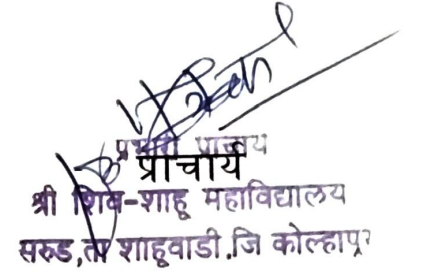 प्रभारी प्राचार्य
प्राचार्य
श्री शिव-शाहू महाविद्यालय
सरुड,ता शाहूवाडी.जि कोल्हापूर